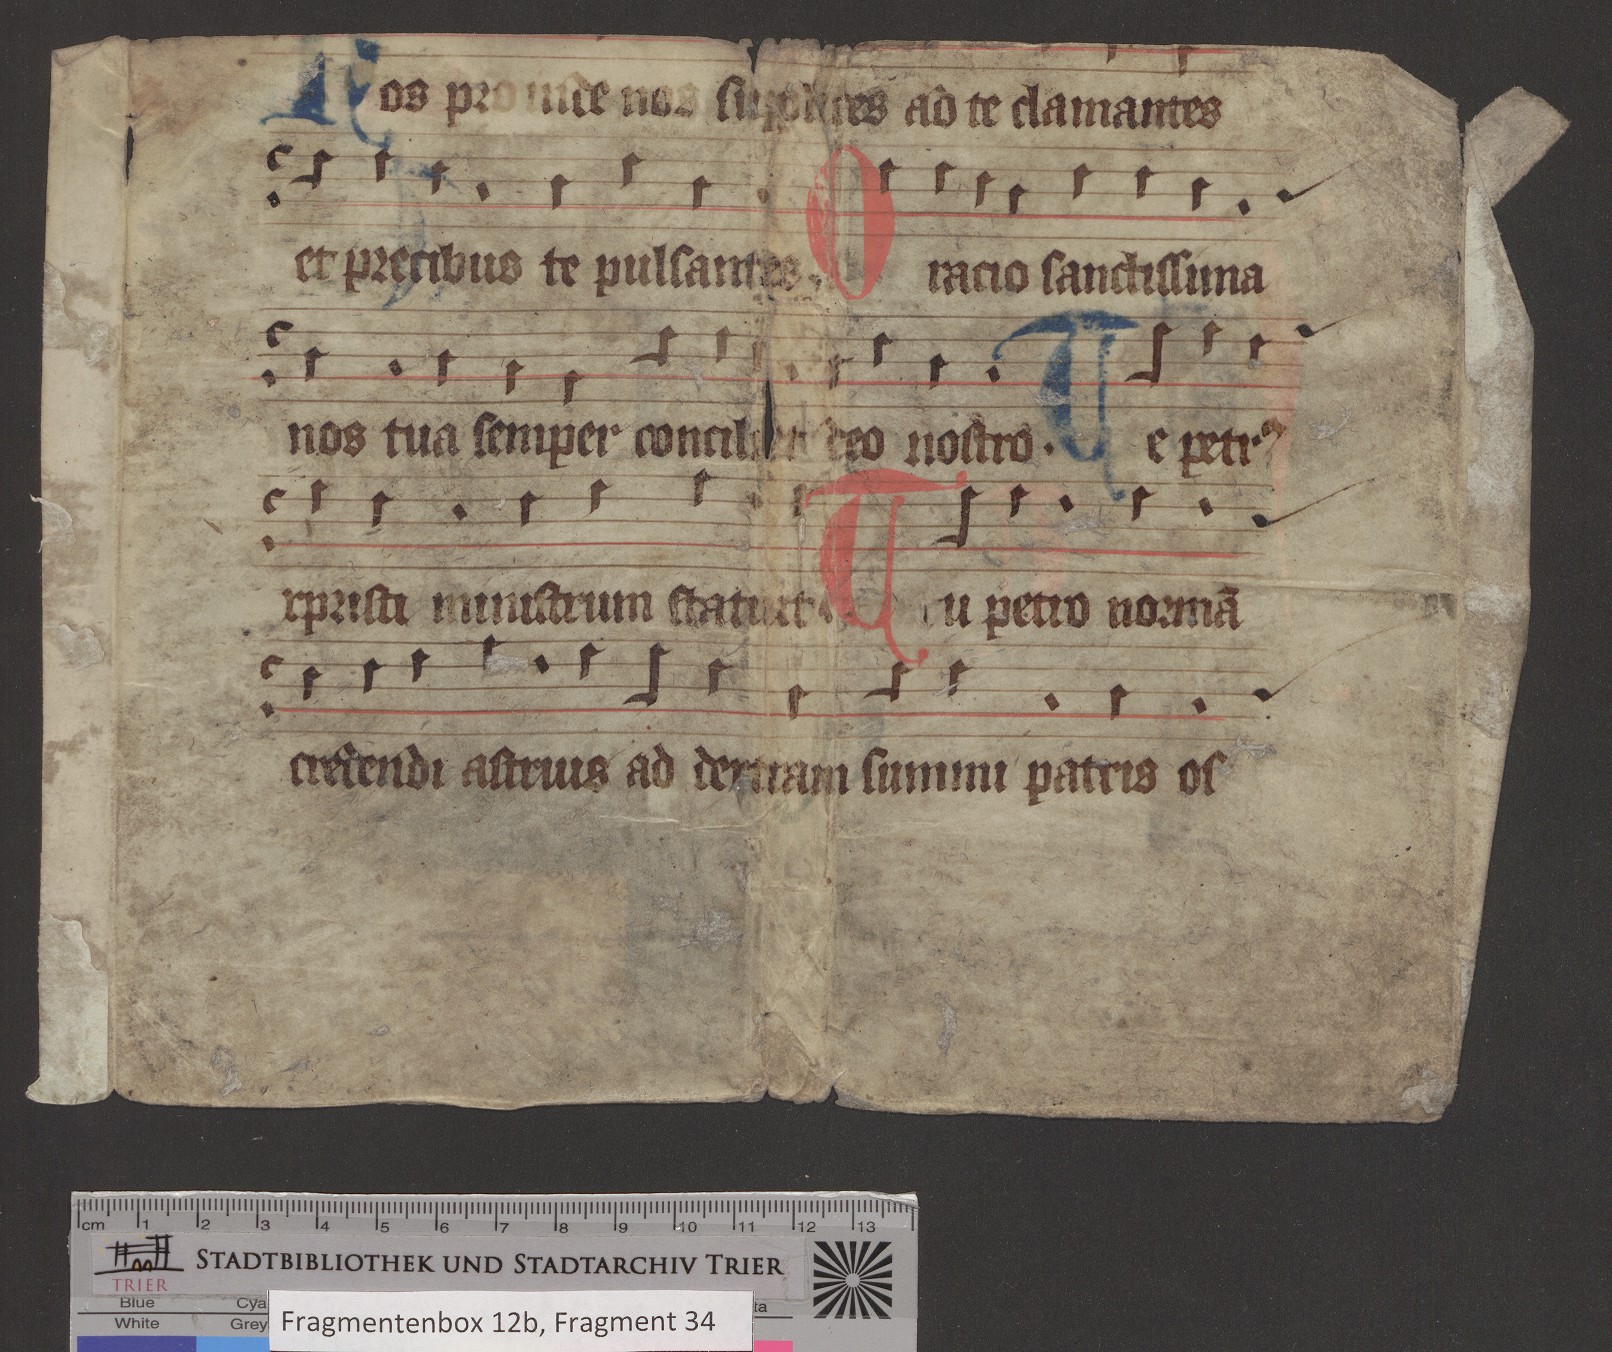 Nos proinde nos supplices ad te clamantes
et precibus te pulsantes. Oracio sanctissima
nos tua semper conciliet deo nostro. Te petrus
xpristi ministrum statuit. Tu petro normā
credendi astruis ad dextram summi patris os
cm 1 2 3 4 5 6 7 8 9 10 11 12 13
STADTBIBLIOTHEK UND STADTARCHIV TRIER
TRIER
Blue Cya
White Grey
Fragmentenbox 12b, Fragment 34